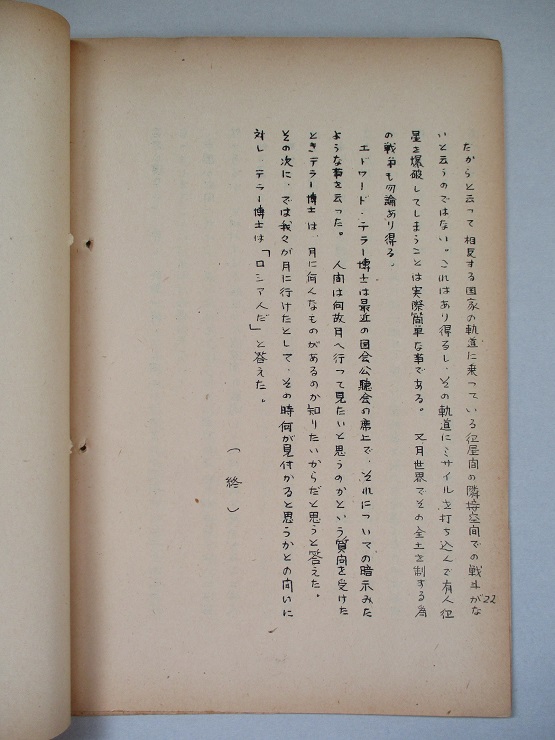 たからと云って相反する国家の軌道に乗っている衛星間の隣接空間での戦斗がな
いと云うのではない。これはあり得るし、その軌道にミサイルを打ち込んで有人衛
星を爆破してしまうことは実際簡単な事である。 又月世界でその全土を制する為
の戦争も勿論あり得る。
エドワード・テラー博士は最近の国会公聴会の席上で、それについての暗示みた
ような事を云った。 人間は何故月へ行って見たいと思うのかという質問を受けた
ときテラー博士は、月に何んなものがあるのか知りたいからだと思うと答えた。
その次に、では我々が月に行けたとして、その時何が見付かると思うかとの問いに
対し、テラー博士は「ロシア人だ」と答えた。
（終）
22